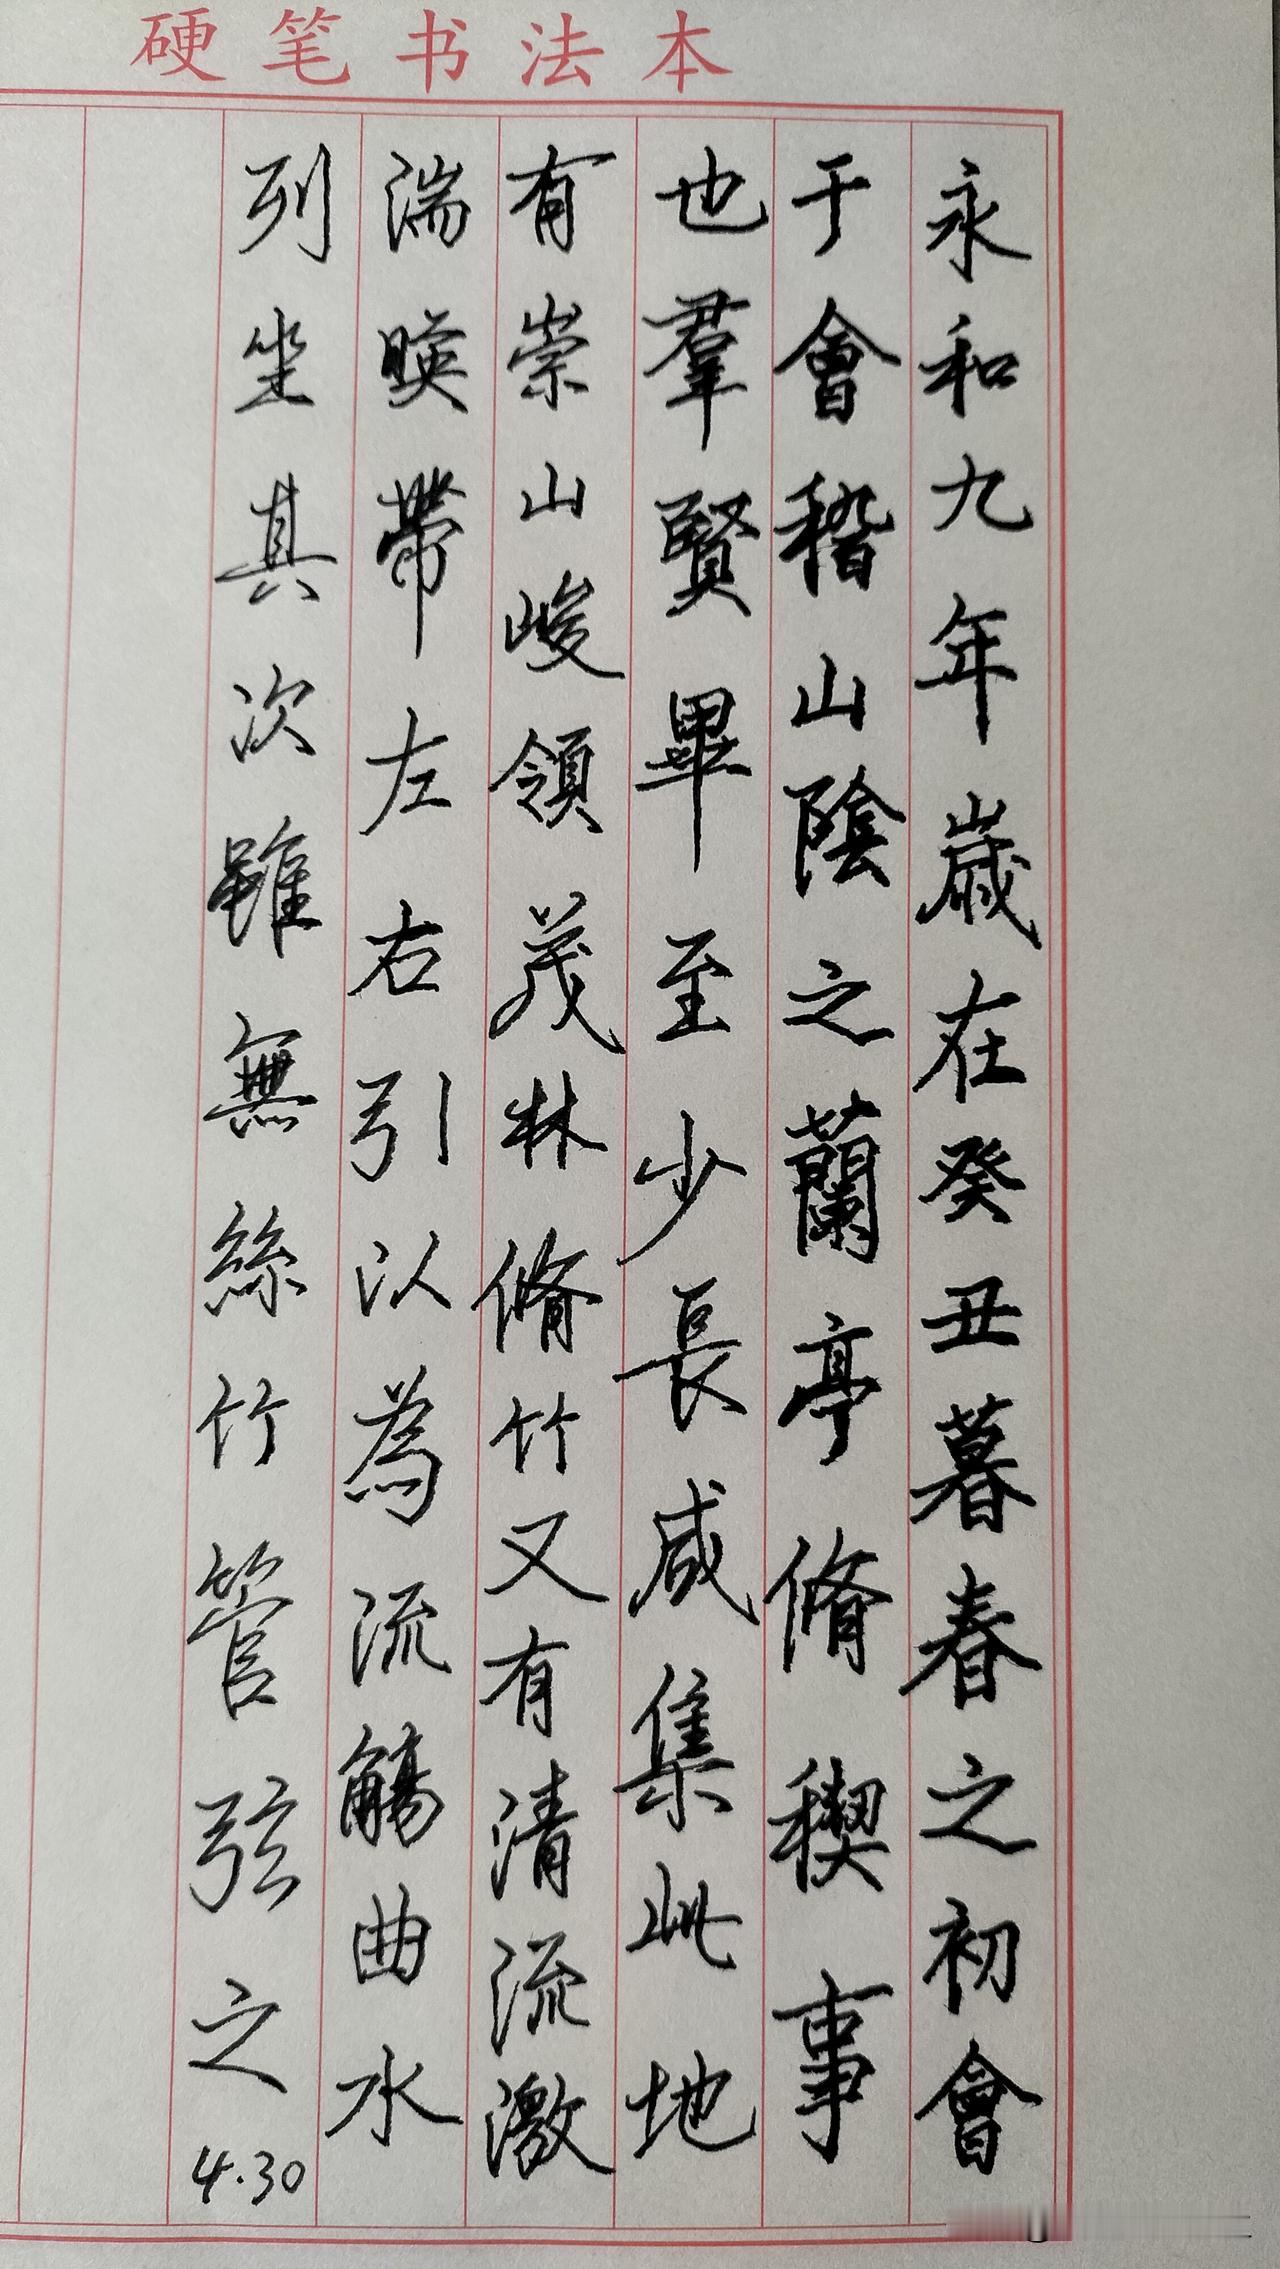 硬笔书法本
永和九年歲在癸丑暮春之初會
于會稽山陰之蘭亭脩稧事
也羣賢畢至少長咸集此地
有崇山峻領茂林脩竹又有清流激
湍暎帶左右引以為流觴曲水
列坐其次雖無絲竹管弦之
4.30